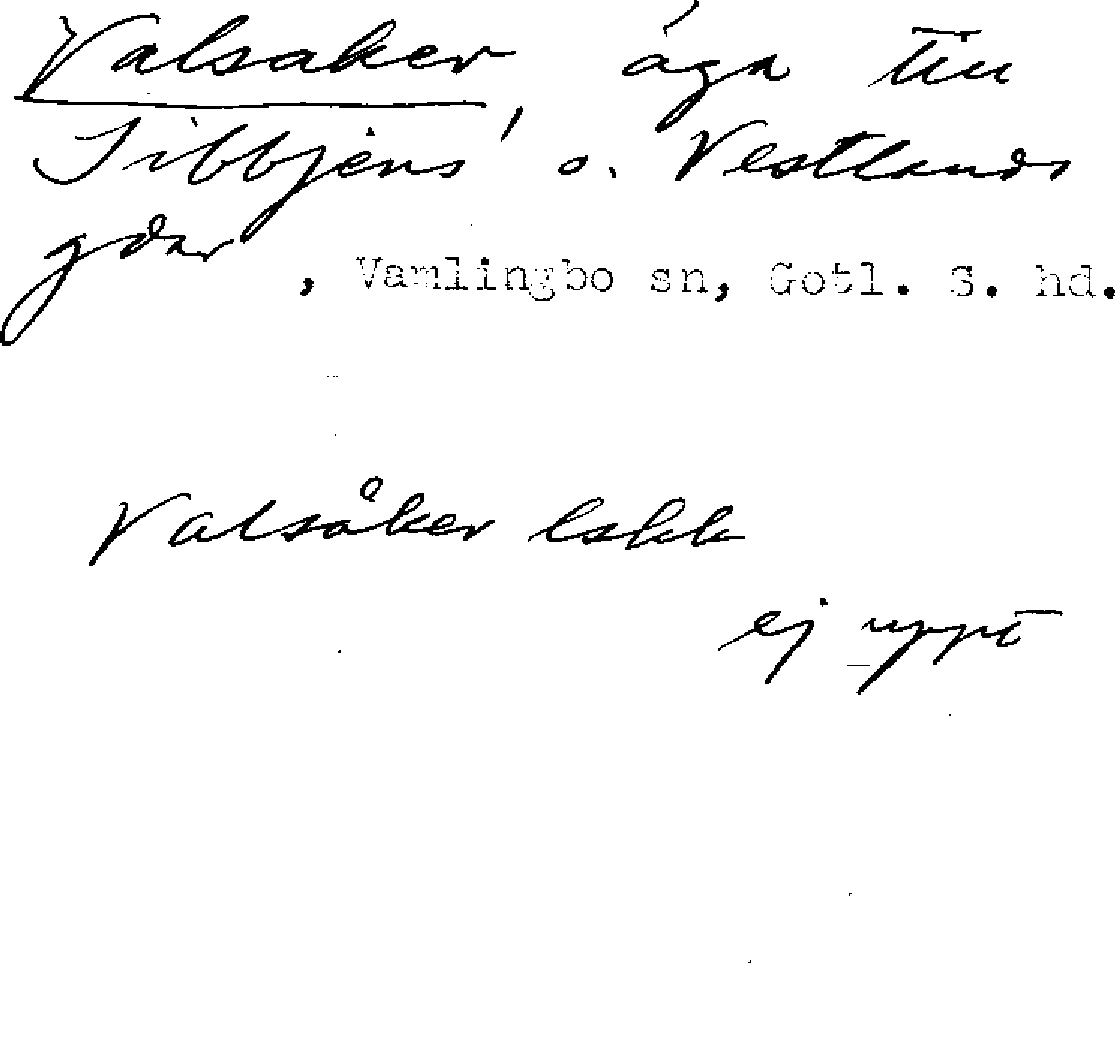 Valsaker, äga till
Sibbjens o. Vestlands
gdar, Vamlingbo sn, Gotl. S. hd.
Valsåker lskk
ej uppt